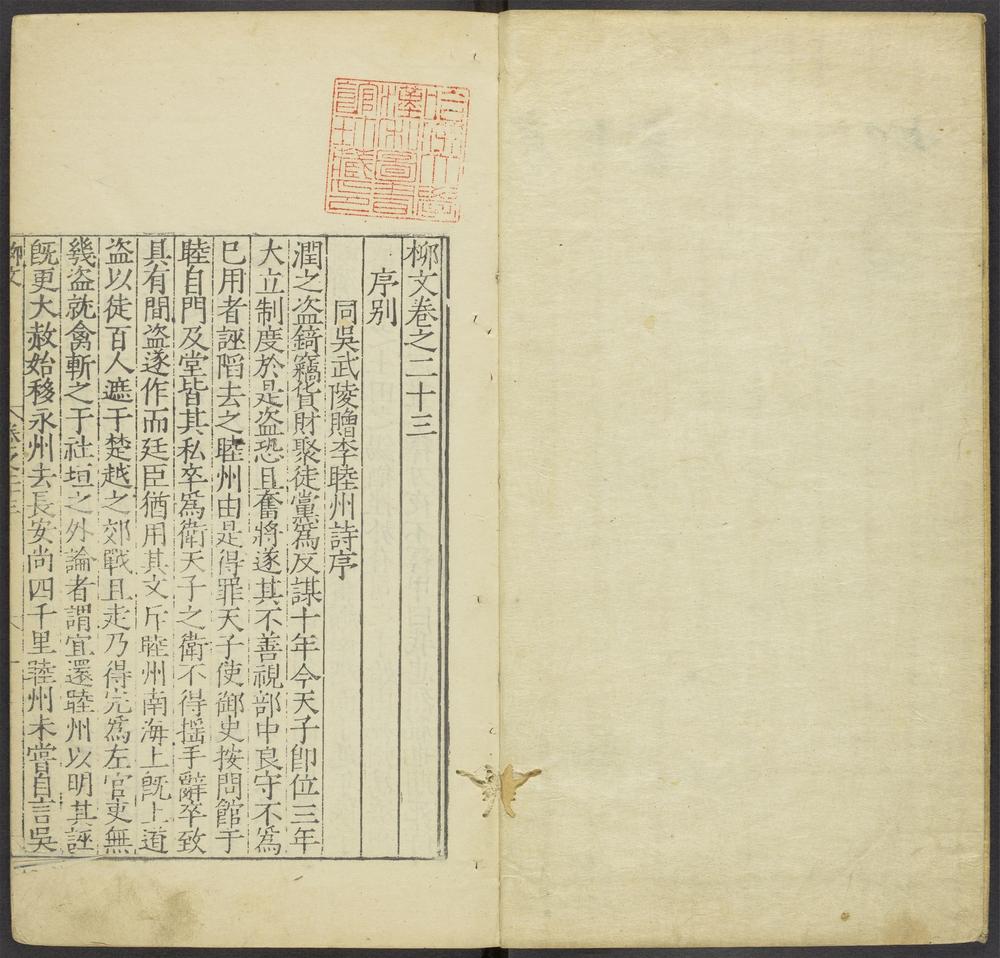 柳文卷之二十三
序别
同吳武陵贈李睦州詩序
潤之盗錡竊貨財聚徒黨爲反謀十年今天子卽位三年
大立制度於是盗恐且奮將遂其不善視部中良守不爲
已用者誣陷去之睦州由是得罪天子使御史按問館于
睦自門及堂皆其私卒爲衛天子之衛不得摇手辭卒致
具有間盗遂作而廷臣猶用其文斥睦州南海上旣上道
盗以徒百人遮于楚越之郊戰且走乃得完爲左官吏無
幾盗就禽斬之于社垣之外論者謂宜還睦州以明其誣
旣更大赦始移永州去長安尚四千里睦州未嘗自言吳
柳文
哈佛大學
漢和圖書
館珍藏印